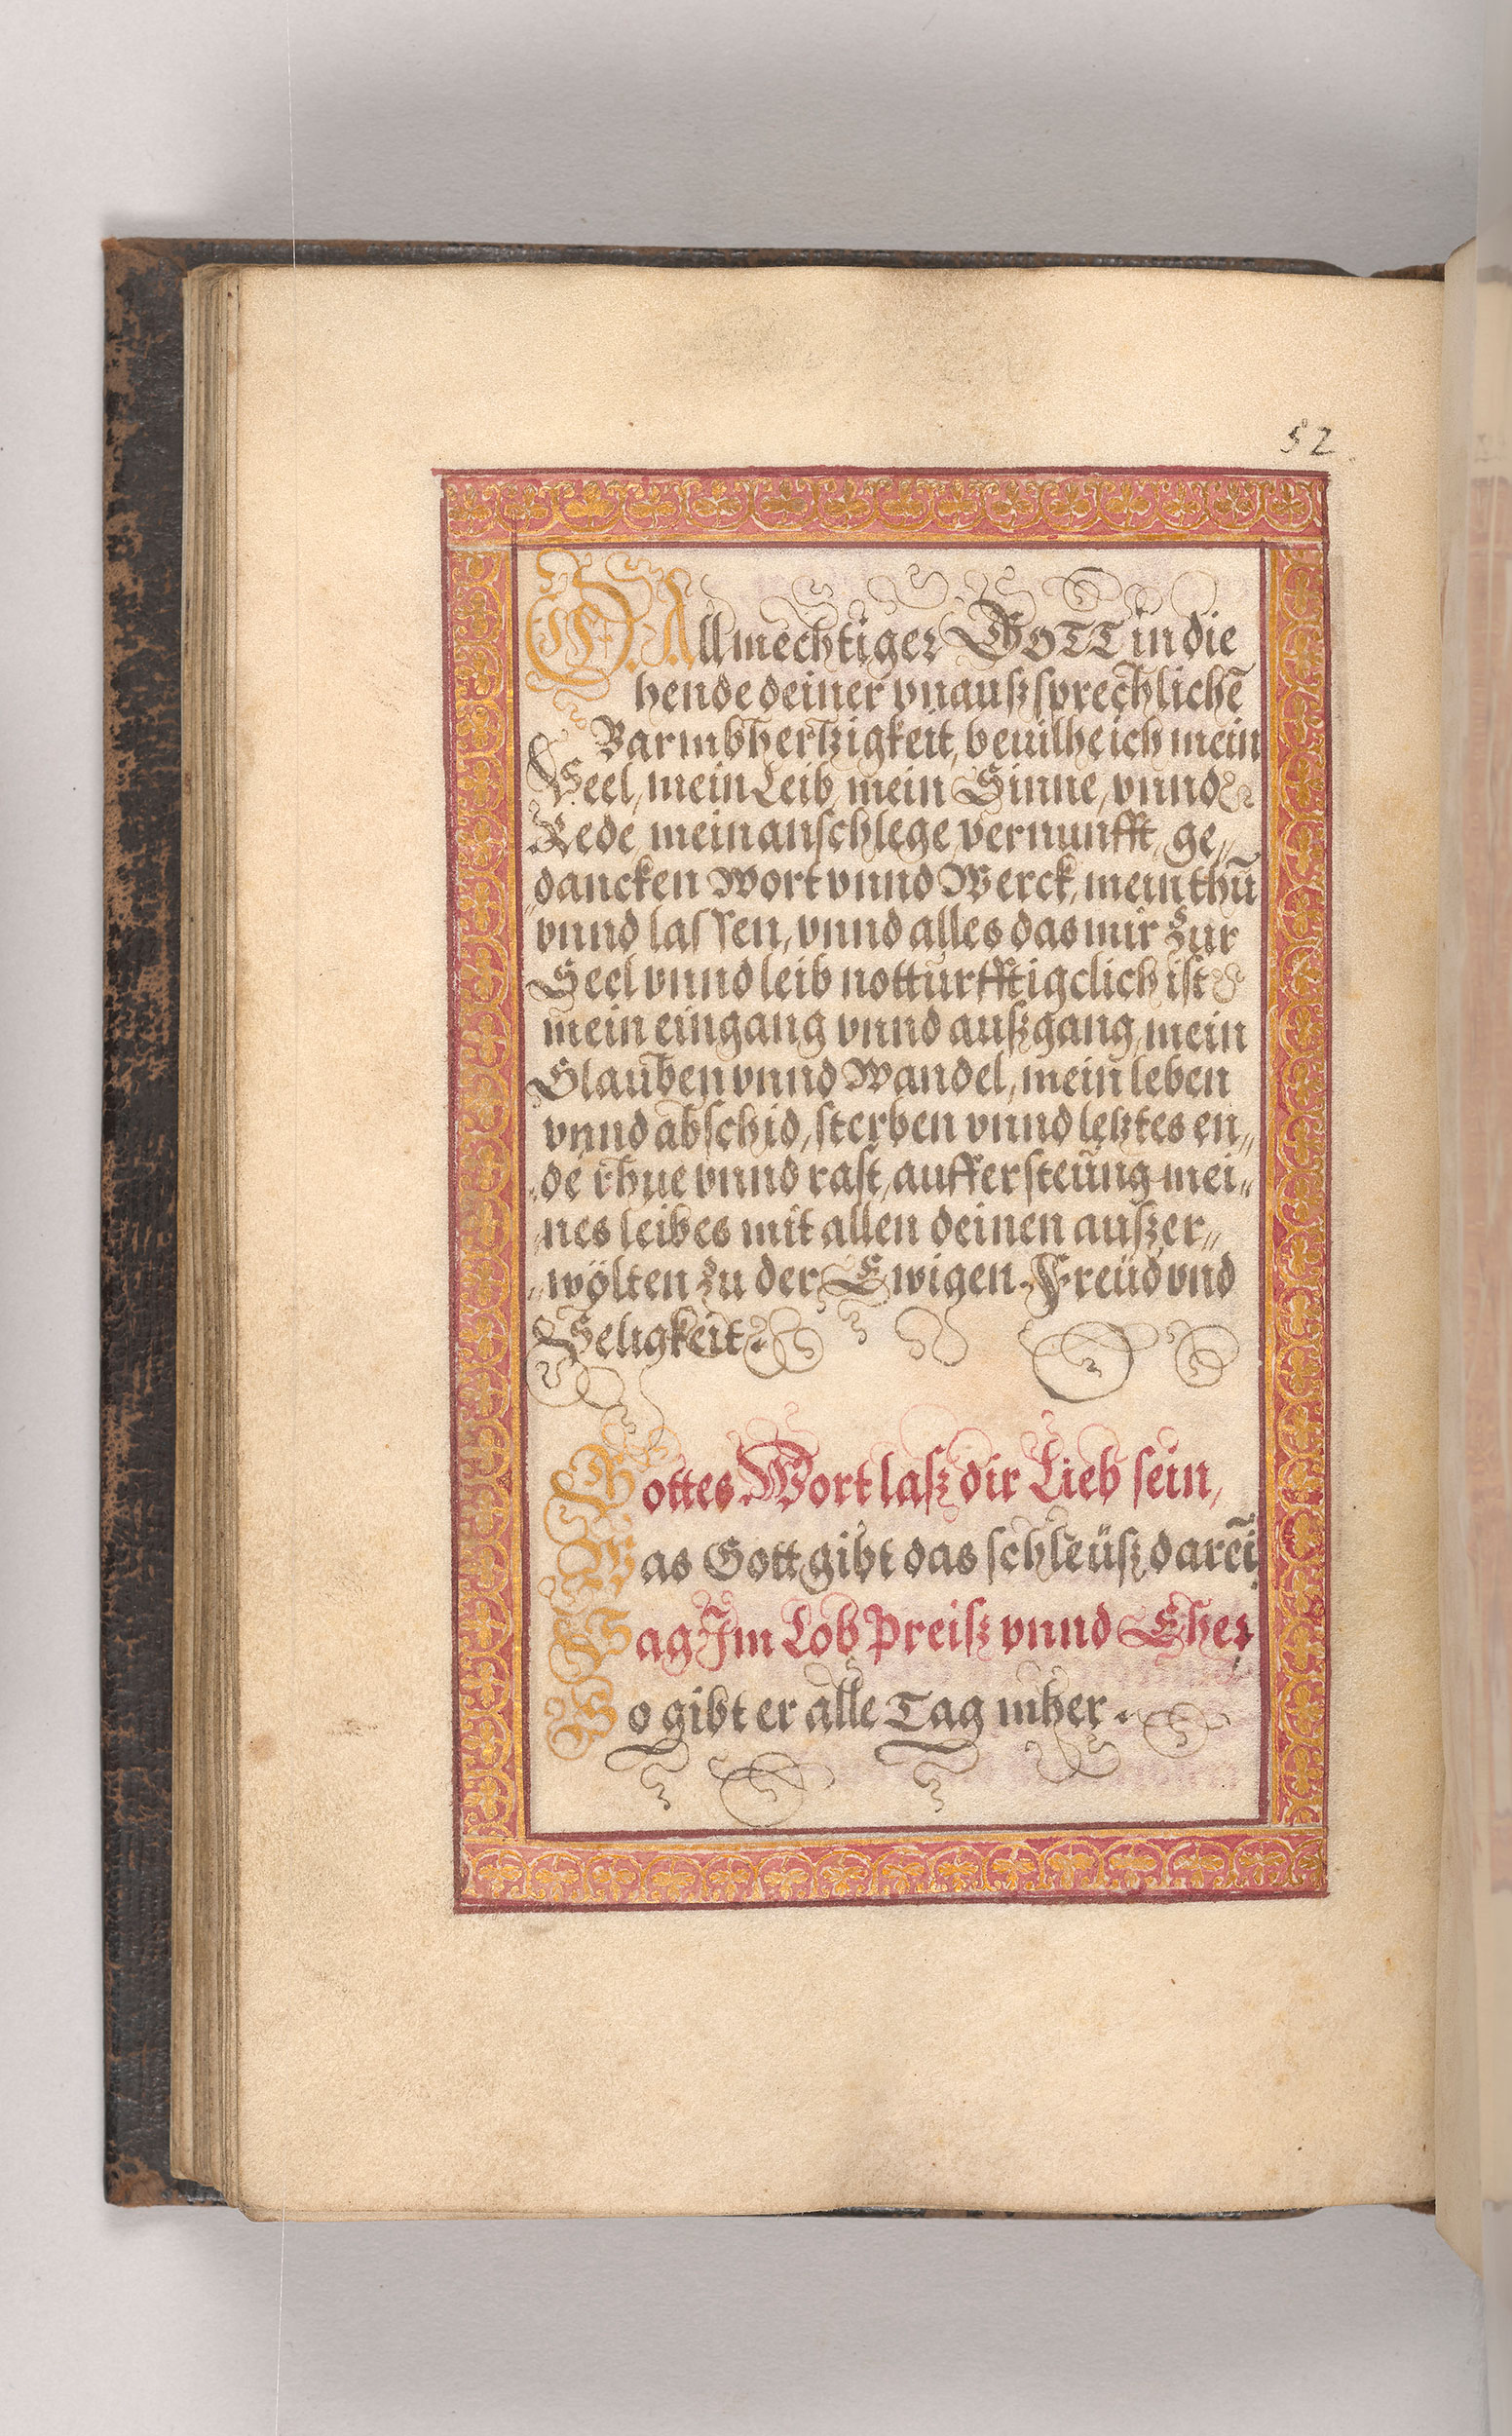 52
O Allmechtiger GOTT in die
hende deiner vnaußsprechlichē
Barmbhertzigkeit, beuilhe ich mein
Seel, mein Leib, mein Sinne, vnnd
Rede, mein anschlege, vernunfft, ge„
„dancken Wort vnnd Werck, mein thū
vnnd lassen, vnnd alles das mir zur
Seel vnnd leib notturfftigclich ist
mein eingang vnnd außgang, mein
Glauben vnnd Wandel, mein leben
vnnd abschid, sterben vnnd letztes en„
„de rhue vnnd rast, auffersteung mei„
„nes leibes mit allen deinen außer„
„wölten zu der Ewigen Freüd vnd
Seligkeit.
Gottes Wort laß dir Lieb sein,
Was Gott gibt das schleüß darēi
Sag Im Lob Preiß vnnd Eher
So gibt er alle Tag mher.